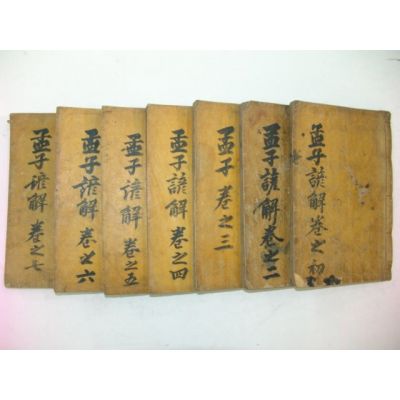 孟子諺解卷之初
孟子諺解卷之二
孟子 卷之三
孟子諺解 卷之四
孟子諺解 卷之五
孟子諺解 卷之六
孟子諺解 卷之七